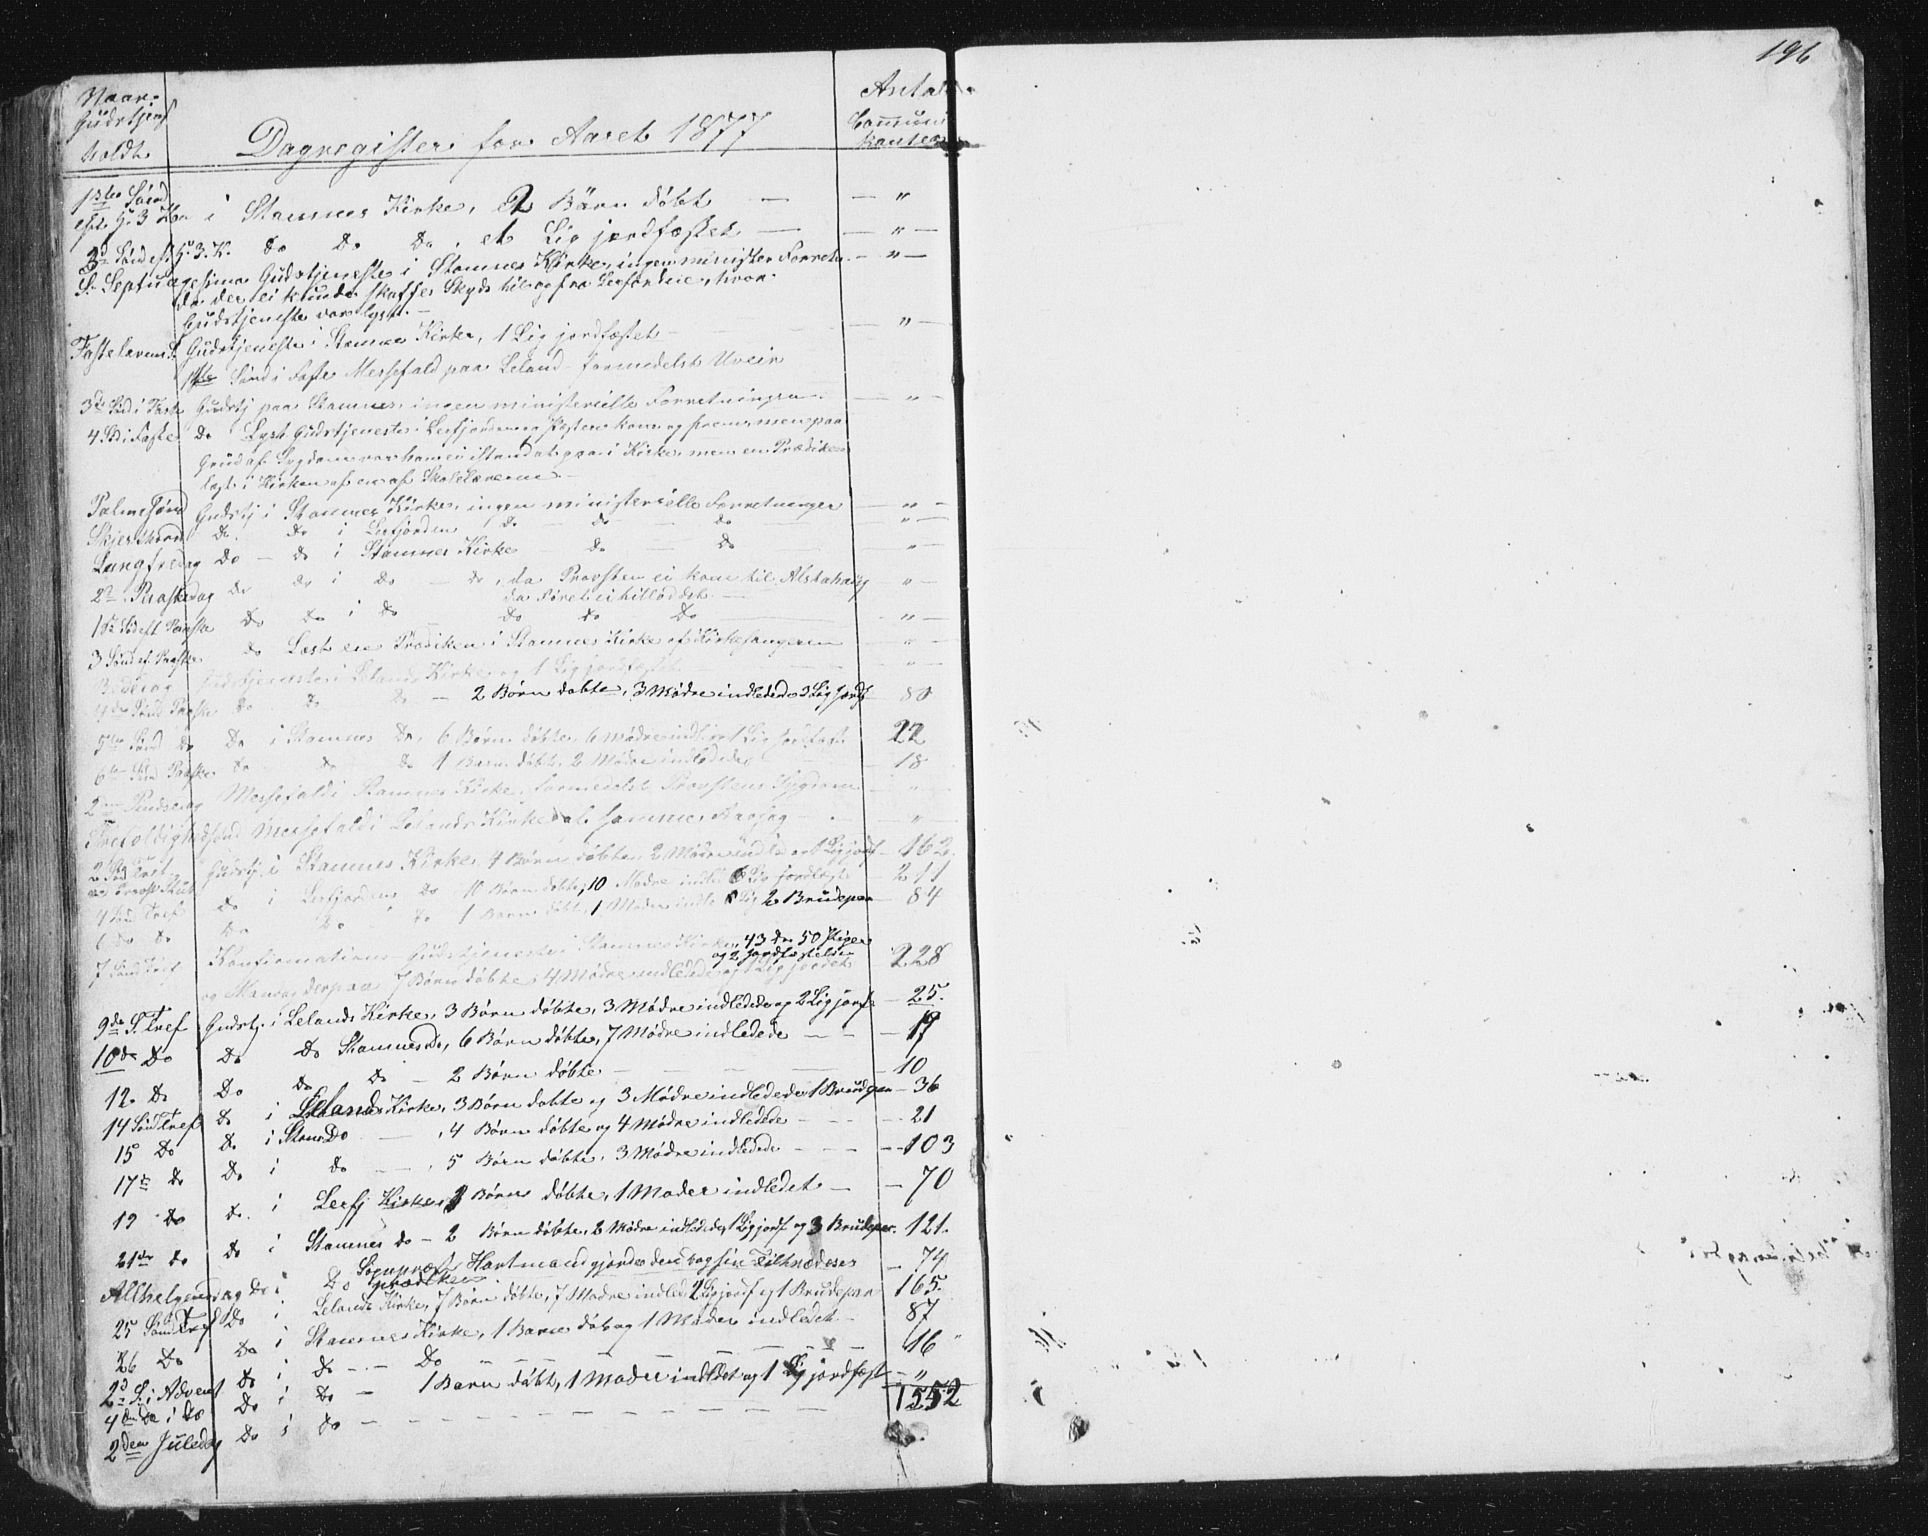 196
Naar
Gudstjenst
holdt
Dagregister for Aaret 1877
Antal
Communi
kanter
1ste Sønd
eft. H. 3 Kon i Stamnes Kirke, 2 Børn døbt — — "
3d Sønd eft H. 3. K. Do Do Do, et Lig jordfæstet — — " —
S. Septuagesima Gudstjeneste i Stamnes Kirke, ingen minister Forretn. — " —
da der ei kunde skaffes Skyds til og fra Leefjorden, hvor
Gudstjeneste var lyst. —
Fastelavns S. Gudstjeneste i Stamnes Kirke, 1 Lig jordfæstet — " —
1ste Sønd i Faste Messefald paa Leland formedelst Uveir
3die Sød i Faste Gudstj paa Stamnes, ingen ministerielle Forretninger. — " —
4 Sd i Faste Do Lyst Gudstjeneste i Leefjorden og Præsten kom og frem, men paa
Grund af Sygdom var han ei istand at gaa i Kirke, men en Prædiken
læst i Kirken af en af Skolelærerne —
Palmesønd Gudstj i Stamnes Kirke, ingen ministerielle Forretninger — " —
Skjærthorsd Do. Do i Leefjorden Do — Do — Do " —
Langfredag Do — Do i Stamnes Kirke — Do — Do " —
2den Paaskedag Do Do i Do — Do, da Provsten ei kom til Alstahaug " —
da Føret ei tillod det —
1ste Sd eft Paaske Do Do i Do Do Do Do — " —
3 Sønd ef. Paaske Do Læst en Prædiken i Stamnes Kirke af Kirkesangeren " —
Bededag Gudstjeneste i Lelands Kirke og 1 Lig jordfæstet — " —
4de Sønd Paaske Do Do Do — 2 Børn døbte, 3 Mødre indledede 2 Lig jordf 80
5te Sønd Do Do i Stamnes Do, 6 Børn døbte, 6 Mødre indl og 1 Lig jordfæst. 22
6te Sønd Paaske Do — Do — Do 1 Barn døbt, 2 Mødre indledede — 18
2den Pindsedag Messefald i Stamnes Kirke, formedelst Provstens Sygdom — " —
Trefoldighedssønd Messefald i Lelands Kirke af samme Aarsag — — " —
2 Sød Tref Gudstj. i Stamnes Kirke, 4 Børn døbte, 2 Mødre indle og 1 Lig jordf — 162.
4 Sønd Tref Do i Leefjorden Do 10 Børn døbte, 10 Mødre indle 6 Lig jordfæst — 211
6 Do Do Do Do Do 1 Barn døbt, 1 Moder indle 8 Lig 2 Brudepar — 84
7 Sønd Tref Konfirmations-Gudstjeneste i Stamnes Kirke, 43 Dr. 50 Piger
og 2 jordfæstelser
og Mandag derpaa 7 Børn døbte, 4 Mødre indledede og 1 Lig jordet 228
9de S. Tref Gudstj. i Lelands Kirke, 3 Børn døbte, 3 Mødre indledede og 2 Lig jordf. — 25.
10de Do Do Do Stamnes Do, 6 Børn døbte, 7 Mødre indledede — — — 17
12. Do Do Do Do — 2 Børn døbte — — — 10
14 Sønd Tref Do i Lelands Kirke, 3 Børn døbte og 3 Mødre indledede, 1 Brudepar — 36
15 Do Do i Stamn Do — , 4 Børn døbte og 4 Mødre indledede — — — 21
17de Do Do i Do — — , 5 Børn døbte, 3 Mødre indledede — — — 103
19 Do Do. i Leefj Kirke, 3 Børn døbte, 1 Moder indledet — — 70
21de Do Do i Stamnes Do — 2 Børn døbte, 2 Mødre indledede, 1 Lig jordf og 3 Brudepar. 121.
Allhelgensdag Do i Do Sognepræst Hartmand gjorde den Dag sin Tiltrædelses — 74
prædiken
25 Sønd Tref Do i Lelands Kirke, 7 Børn døbte, 7 Mødre indled, 2 Lig jordf og 1 Brudepar 165.
26 Do Do i Stamnes Kirke, 1 Barn døb og 1 Moder indledet — 87
2d S. i Advent Do i Do — — Do — — — — 16 "
4de Do i Do Do i Do — 1 Barn døbt, 1 Moder indledet og 1 Lig jordfæst — "
2den Juledag Do i Do — — — — — — — 1552